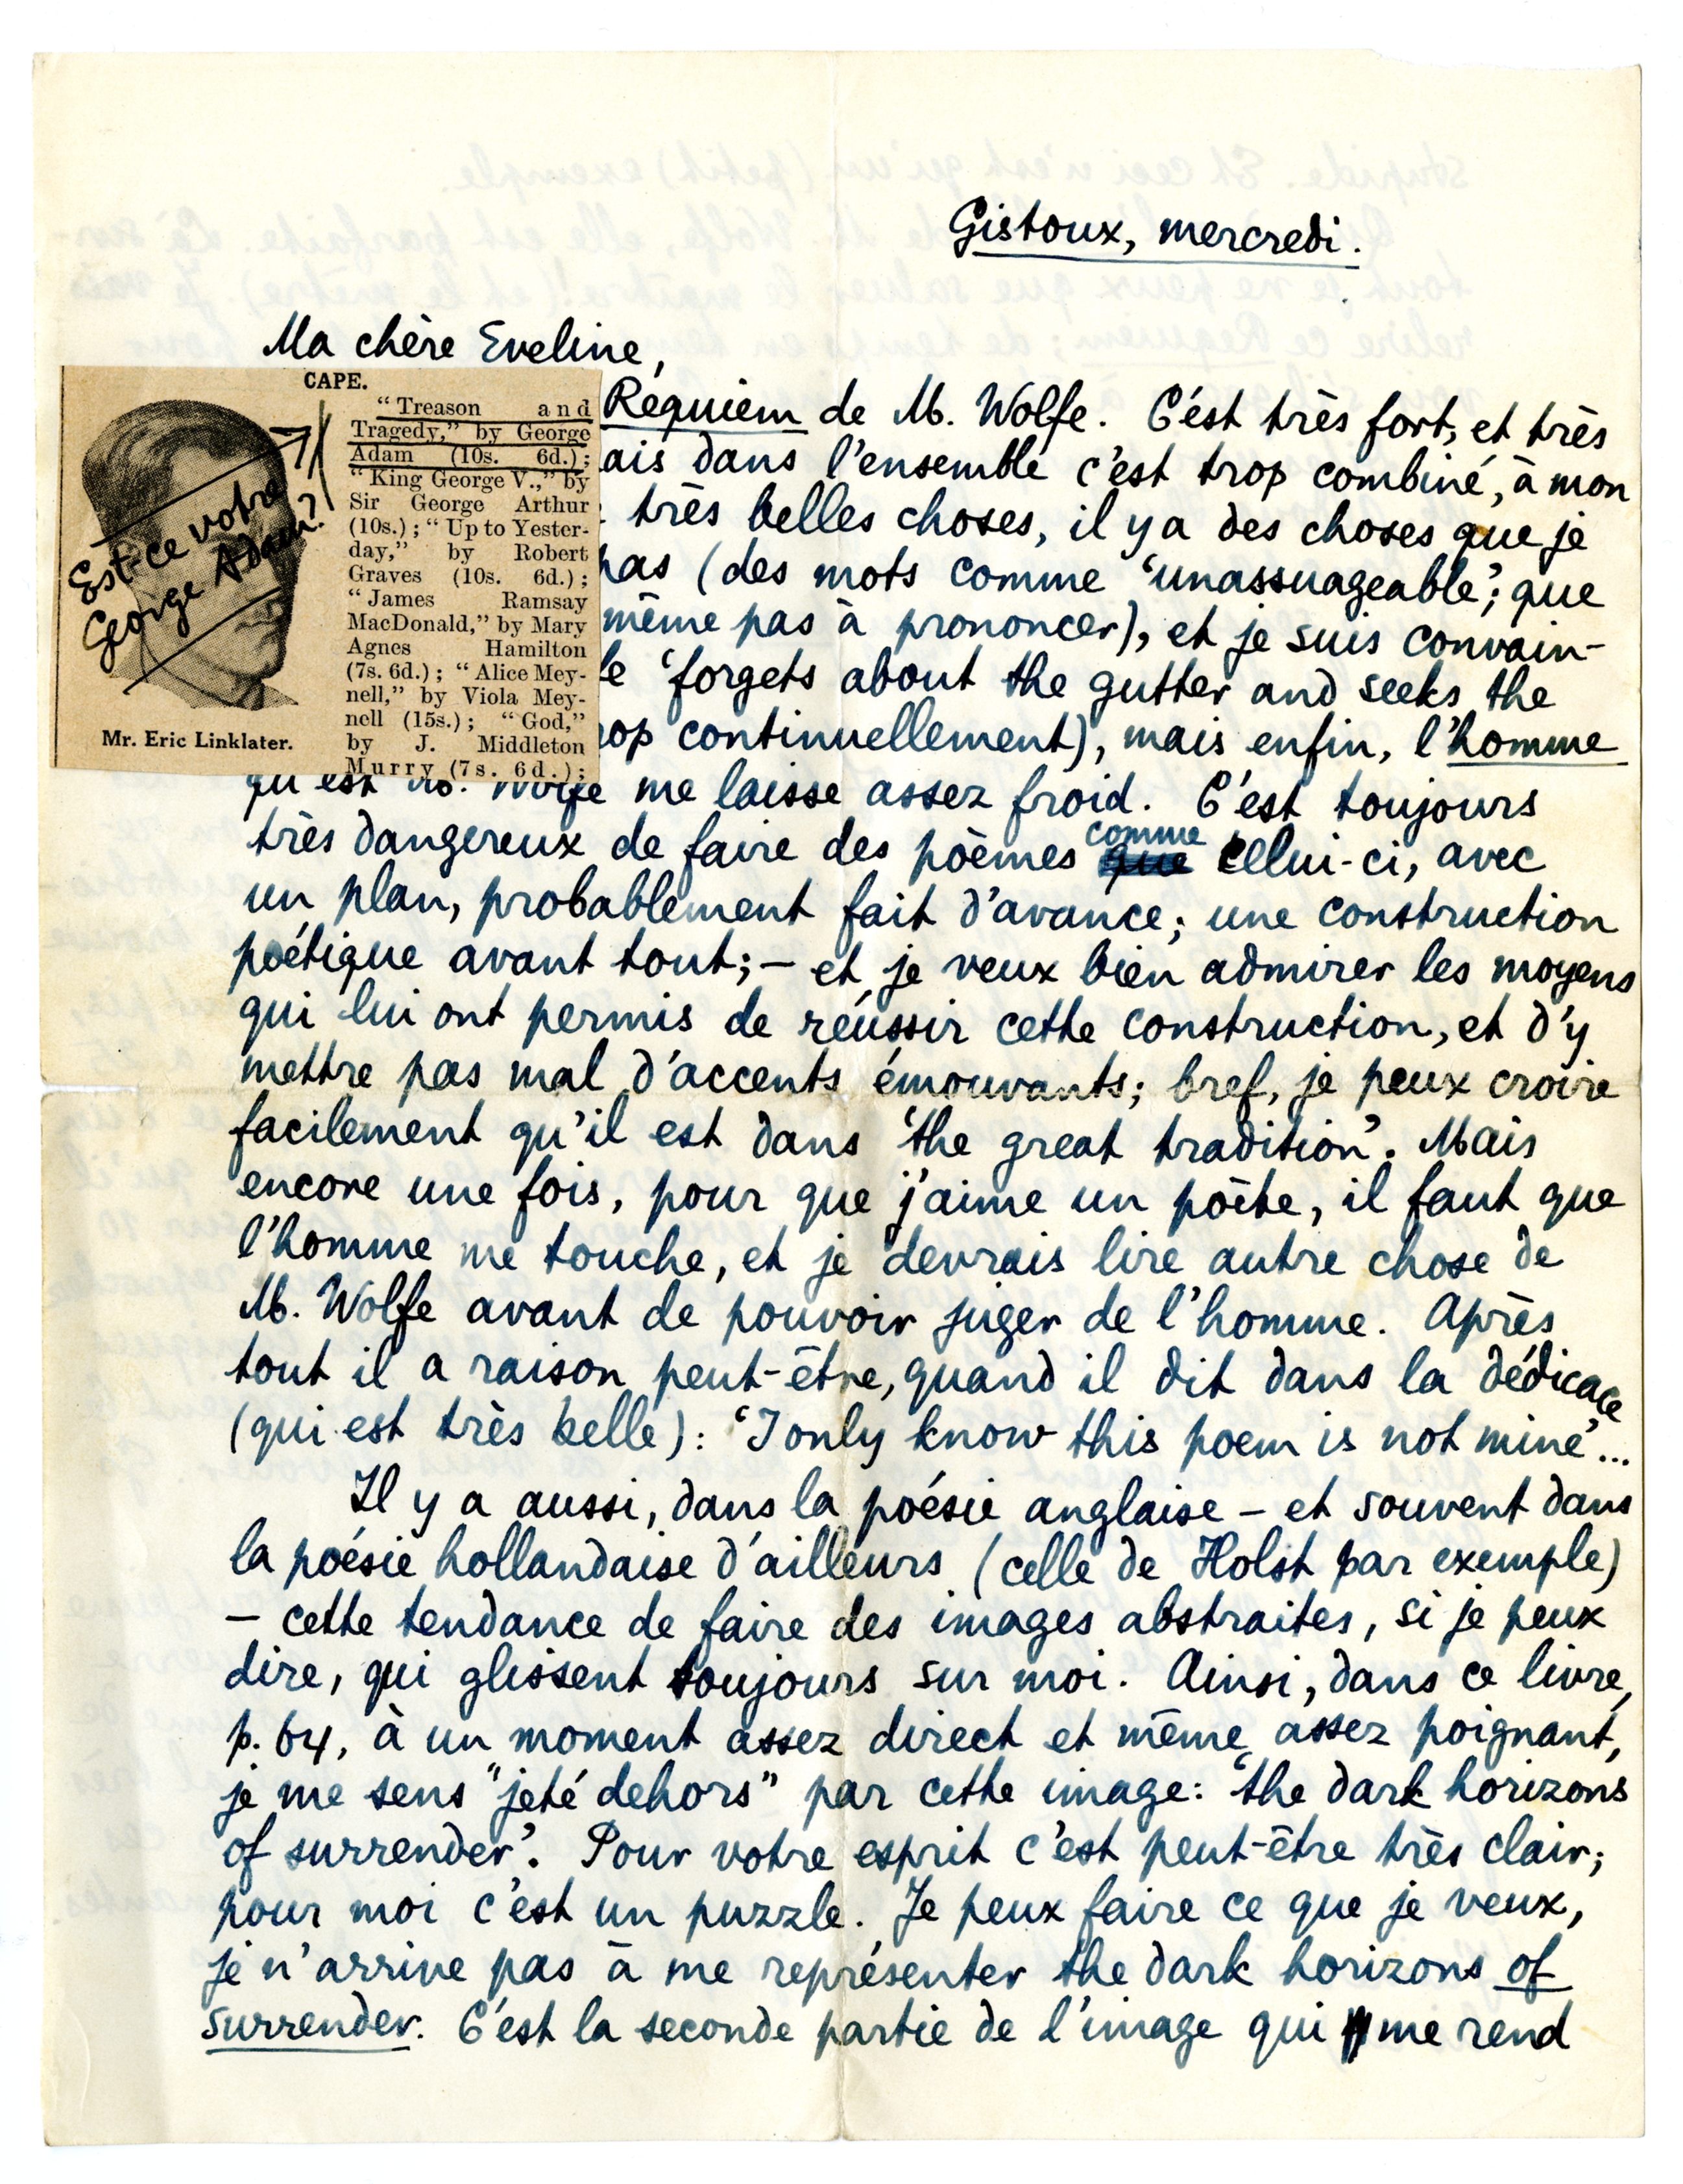 Gistoux, mercredi.
Ma chère Eveline,
CAPE.
"Treason and
Tragedy," by George
Adam (10s. 6d.);
"King George V.," by
Sir George Arthur
(10s.); "Up to Yester-
day," by Robert
Graves (10s. 6d.);
"James Ramsay
MacDonald," by Mary
Agnes Hamilton
(7s. 6d.); "Alice Mey-
nell," by Viola Mey-
nell (15s.); "God,"
by J. Middleton
Murry (7s. 6d.);
Mr. Eric Linklater.
Est-ce votre
George Adam?
Requiem de M. Wolfe. C'est très fort, et très
ais dans l'ensemble c'est trop combiné, à mon
très belles choses, il y a des choses que je
pas (des mots comme 'unassuageable', que
même pas à prononcer), et je suis convain-
le 'forgets about the gutter and seeks the
rop continuellement), mais enfin, l'homme
qu'est M. Wolfe me laisse assez froid. C'est toujours
très dangereux de faire des poèmes comme celui-ci, avec
un plan, probablement fait d'avance; une construction
poétique avant tout; – et je veux bien admirer les moyens
qui lui ont permis de réussir cette construction, et d'y
mettre pas mal d'accents émouvants; bref, je peux croire
facilement qu'il est dans 'the great tradition'. Mais
encore une fois, pour que j'aime un poète, il faut que
l'homme me touche, et je devrais lire autre chose de
M. Wolfe avant de pouvoir juger de l'homme. Après
tout il a raison peut-être, quand il dit dans la dédicace
(qui est très belle): 'I only know this poem is not mine'...
Il y a aussi, dans la poésie anglaise – et souvent dans
la poésie hollandaise d'ailleurs (celle de Holst par exemple)
– cette tendance de faire des images abstraites, si je peux
dire, qui glissent toujours sur moi. Ainsi, dans ce livre,
p. 64, à un moment assez direct et même assez poignant,
je me sens "jeté dehors" par cette image: 'the dark horizons
of surrender'. Pour votre esprit c'est peut-être très clair;
pour moi c'est un puzzle. Je peux faire ce que je veux,
je n'arrive pas à me représenter the dark horizons of
surrender. C'est la seconde partie de l'image qui me rend